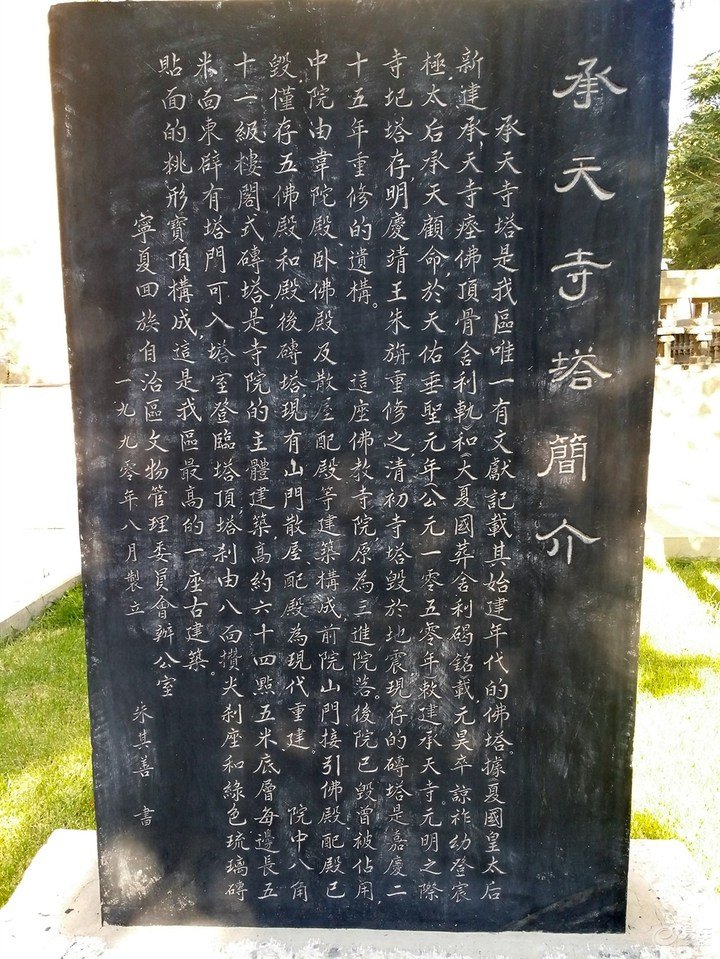 承天寺塔簡介
承天寺塔是我區唯一有文獻記載其始建年代的佛塔。據夏國皇太后
新建承天寺瘞佛頂骨舍利軌和大夏國葬舍利碣銘載,元昊卒諒祚幼登宸
極太后承天顧命於天佑垂聖元年(公元一零五零年敕建承天寺元明之際
寺圮塔存,明慶靖王朱旃重修之清初寺塔毀於地震現存的磚塔是嘉慶二
十五年重修的遺構。 這座佛教寺院原為三進院落。後院已毀曾被佔用,
中院由韋陀殿、卧佛殿及散屋配殿等建築構成前院山門接引佛殿配殿已
毀,僅存五佛殿和殿後磚塔現有山門散屋配殿為現代重建。 院中八角
十一級樓閣式磚塔是寺院的主體建築,高約六十四點五米底層每邊長五
米面東辟有塔門可入塔室登臨塔頂,塔刹由八面攢尖刹座和綠色琉璃磚
貼面的桃形寶頂構成,這是我區最高的一座古建築。
寧夏回族自治區文物管理委員會辦公室
一九九零年八月製立 朱其善 書